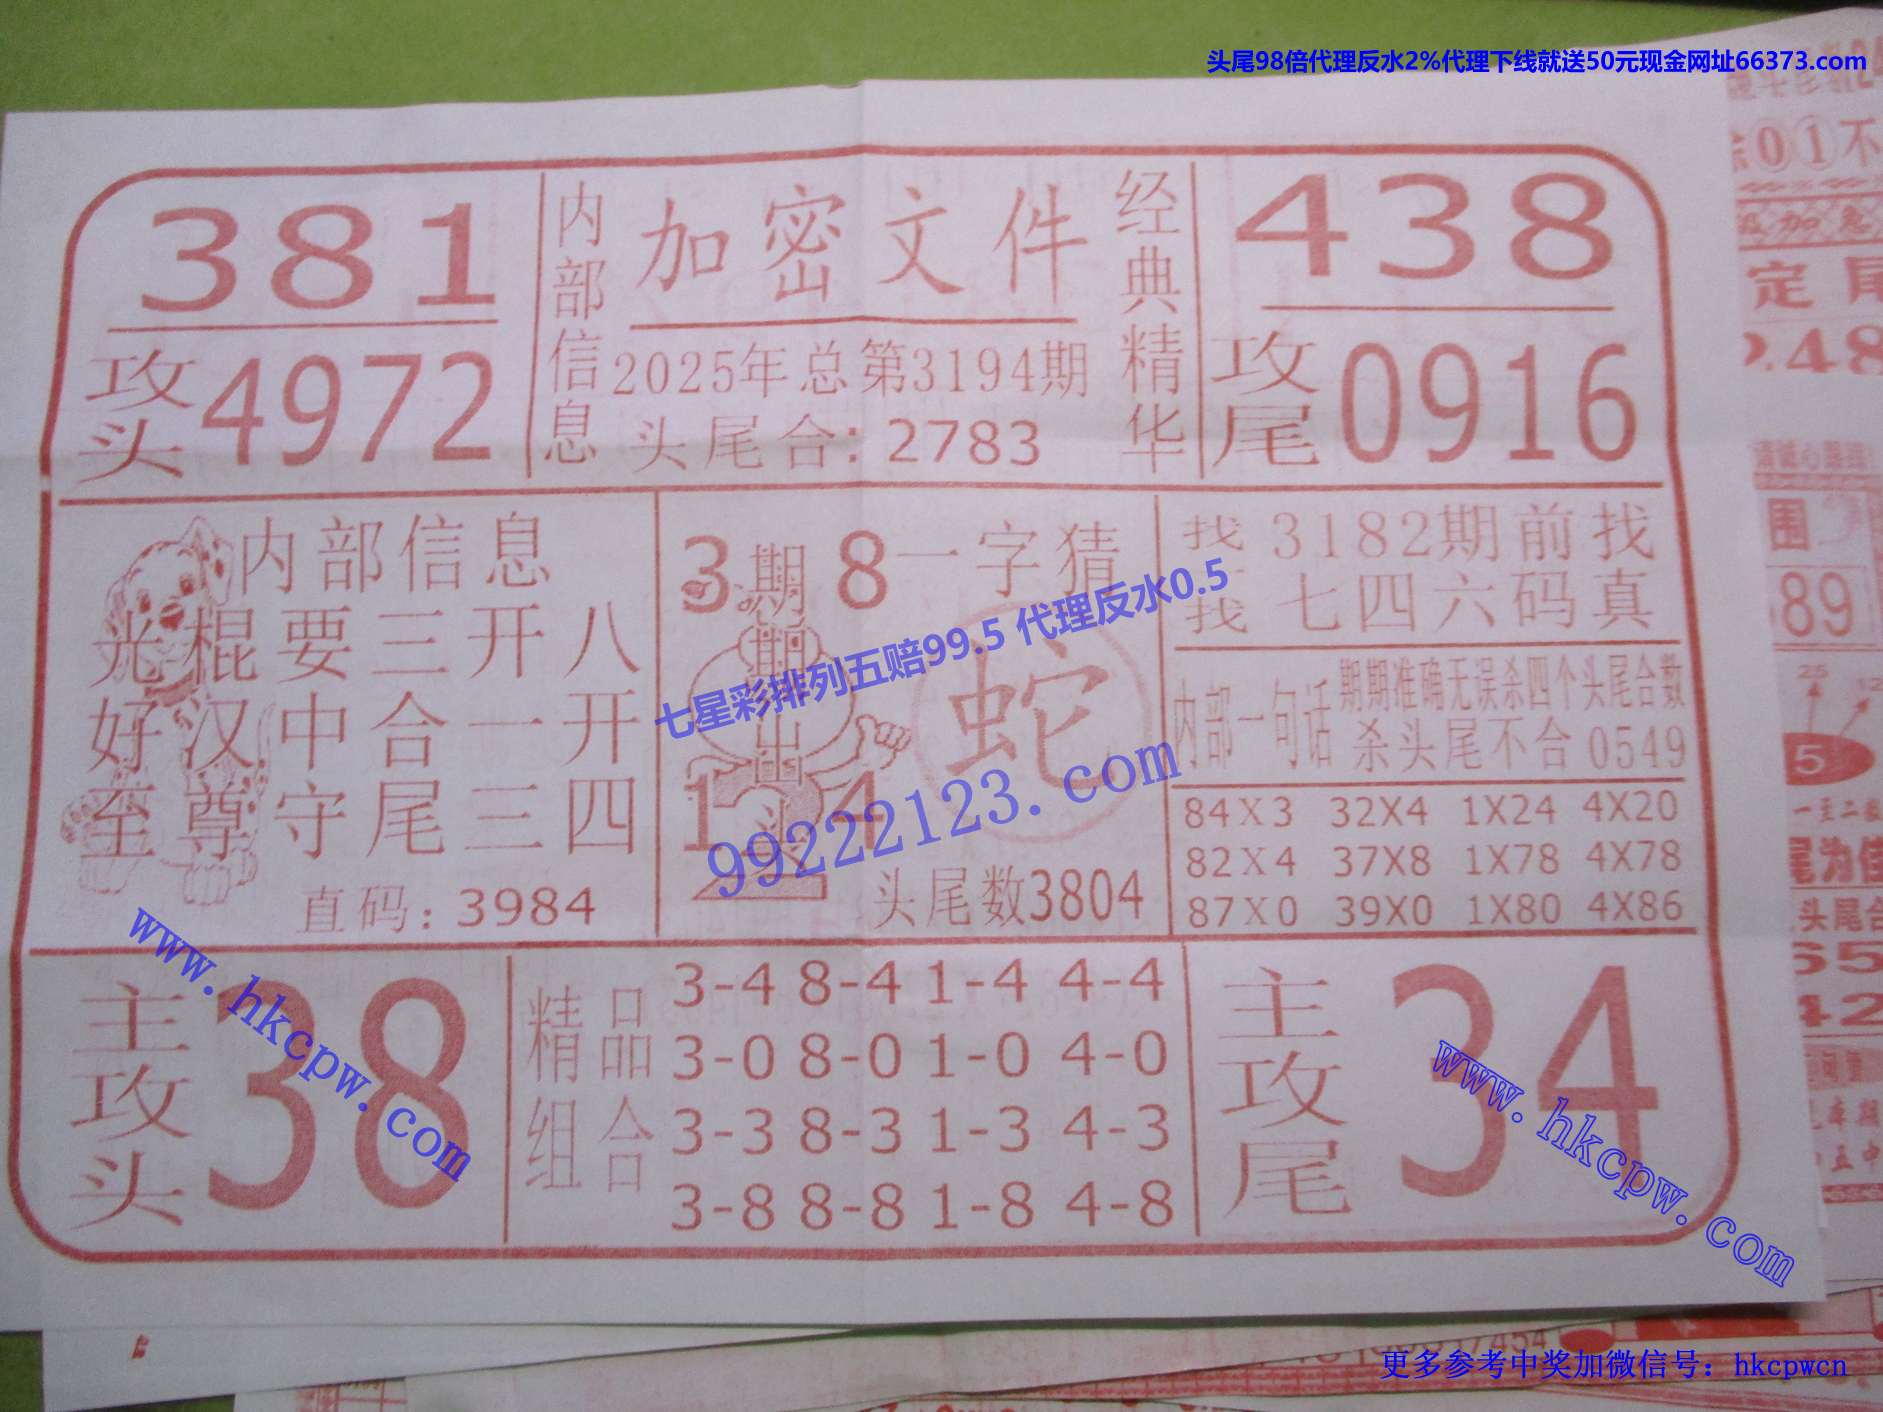 头尾98倍代理反水2%代理下线就送50元现金网址66373.com
381
攻头4972
内部信息
加密文件
2025年总第3194期
头尾合:2783
经典精华
438
攻尾0916
内部信息
光棍要三开八
好汉中合一开
至尊守尾三四
直码:3984
3期8一字猜
期
出
蛇
1 2 4
头
头尾数3804
找3182期前找
找七四六码真
内部一句话
期期准确无误杀四个头尾合数
杀头尾不合0549
84X3 32X4 1X24 4X20
82X4 37X8 1X78 4X78
87X0 39X0 1X80 4X86
主攻头
38
精品组合
3-4 8-4 1-4 4-4
3-0 8-0 1-0 4-0
3-3 8-3 1-3 4-3
3-8 8-8 1-8 4-8
主攻尾
34
七星彩排列五赔99.5 代理反水0.5
99222123.com
www.hkcpw.com
www.hkcpw.com
01不
定尾
围
89
25
5
尾为佳
头尾合
65
42
更多参考中奖加微信号：hkcpwcn